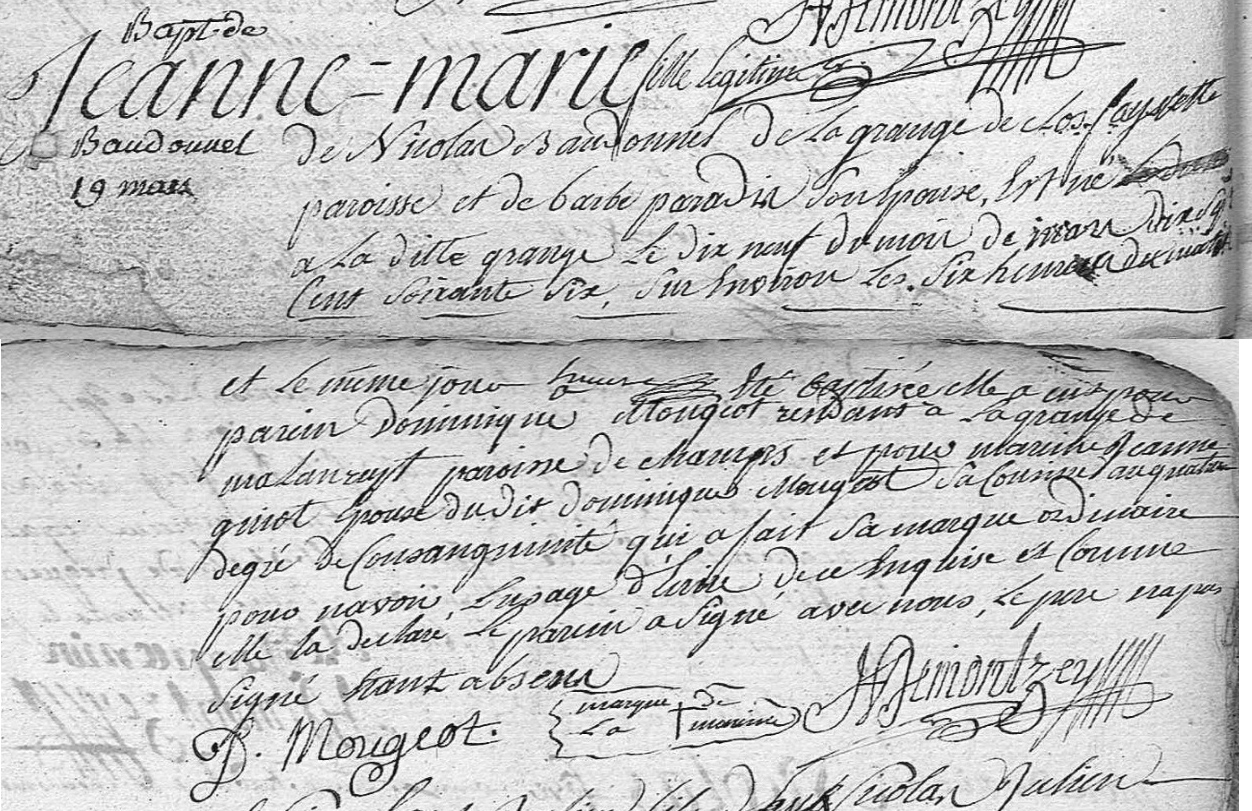 Bapt. de
Jeanne=marie fille legitime
Baudonnel
19 mars
de Nicolas Baudonnel de La grange de clos
paroisse et de barbe paradis son Epouse, Est né
a La ditte grange Le dix neuf du mois de mars dix sept
Cent soixante six, sur Environ Les six heures du matin
et Le même jour heure Eté baptisée elle a eus pour
parein Dominique Mougeot residant à La grange de
paroisse de champs et pour mareine Jeanne
Epouse du dit Dominique Mougeot sa Cousine au quatre
degré de Consanguinité qui a fait sa marque ordinaire
pour n'avoir L'usage d'Ecrire de ce Enquise et Comme
elle la declaré Le parein a signé avec nous, Le pere na pas
signé Etant absens
D. Mougeot.
marque de
La mareine
HDemontzey
Nicolas Julien